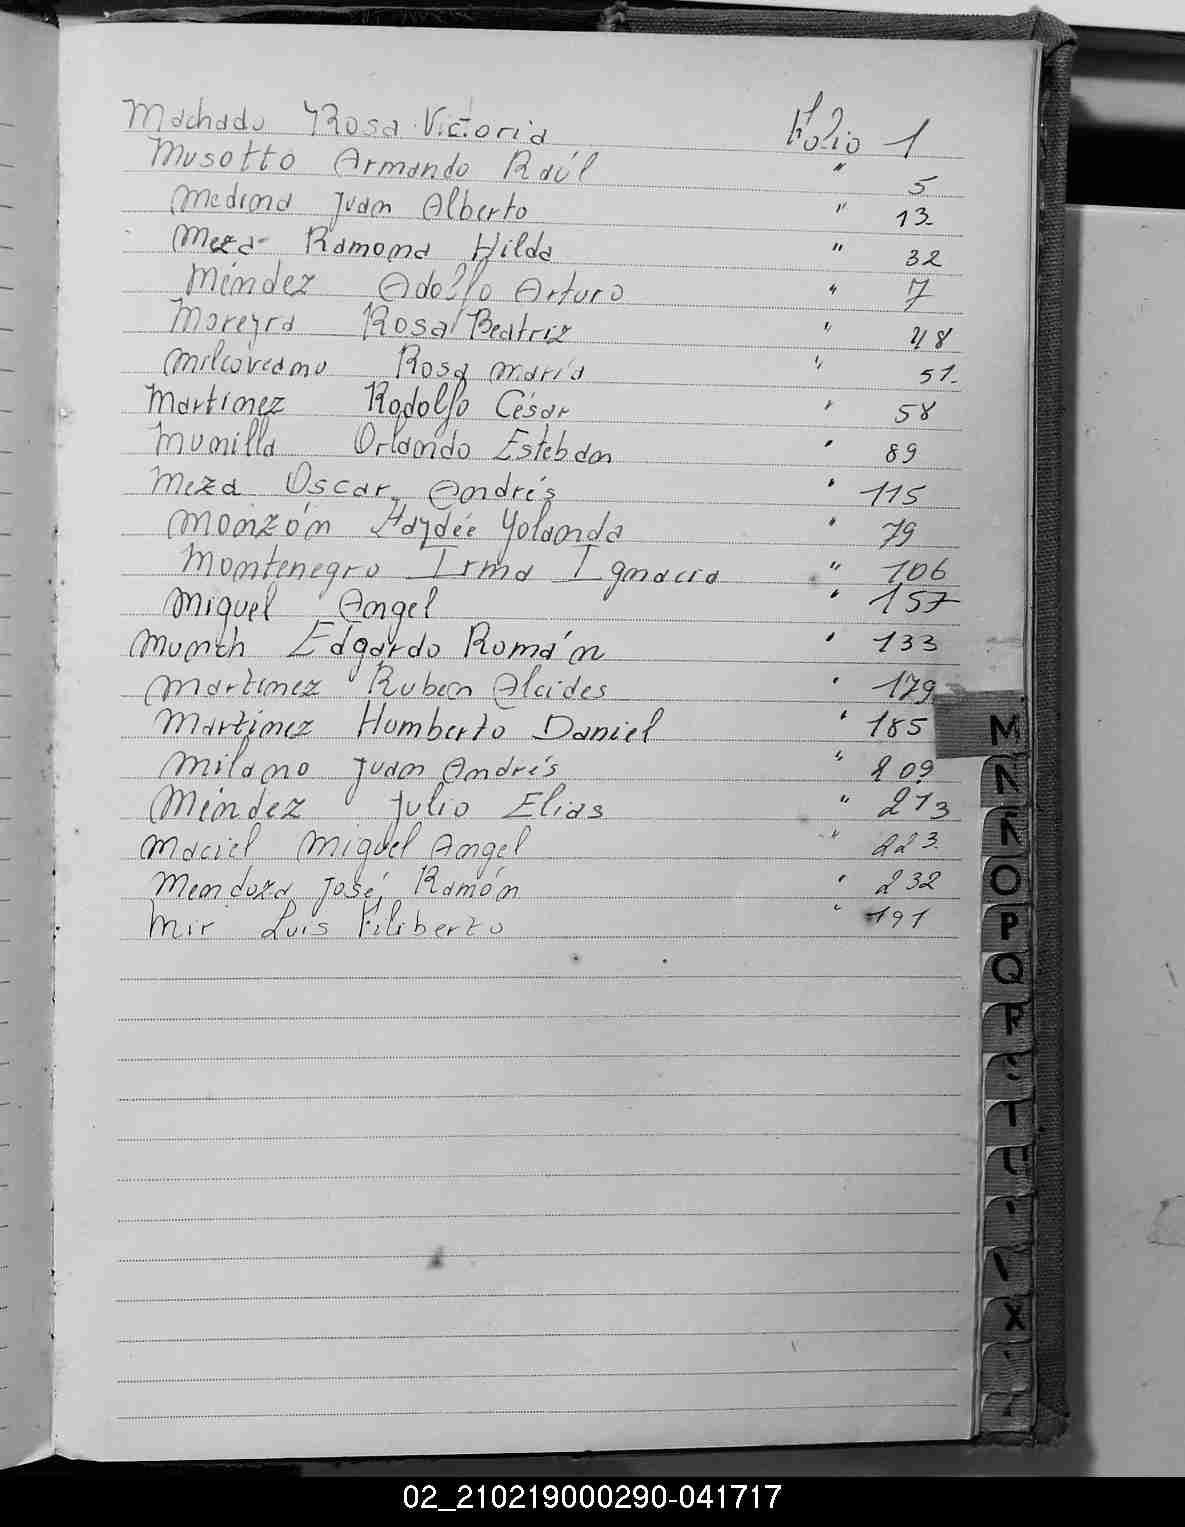 Machado Rosa Victoria Folio 1
Musotto Armando Raúl " 5
Medina Juan Alberto " 13
Meza Ramona Hilda " 32
Méndez Adolfo Arturo " 7
Moreyra Rosa Beatriz " 48
Rosa María " 51
Martínez Rodolfo César " 58
Munilla Orlando Esteban " 89
Meza Oscar Andrés " 115
Monzón Haydée Yolanda " 79
Montenegro Irma Ignacia " 106
Miguel Angel " 157
Munth Edgardo Román " 133
Martinez Ruben Alcides " 179
Martínez Humberto Daniel " 185
Milano Juan Andrés " 209
Méndez Julio Elias " 213
Maciel Miguel Angel " 223
Mendoza José Ramón " 232
Mir Luis Filiberto " 191
M
O
P
Q
R
T
X
02_210219000290-041717